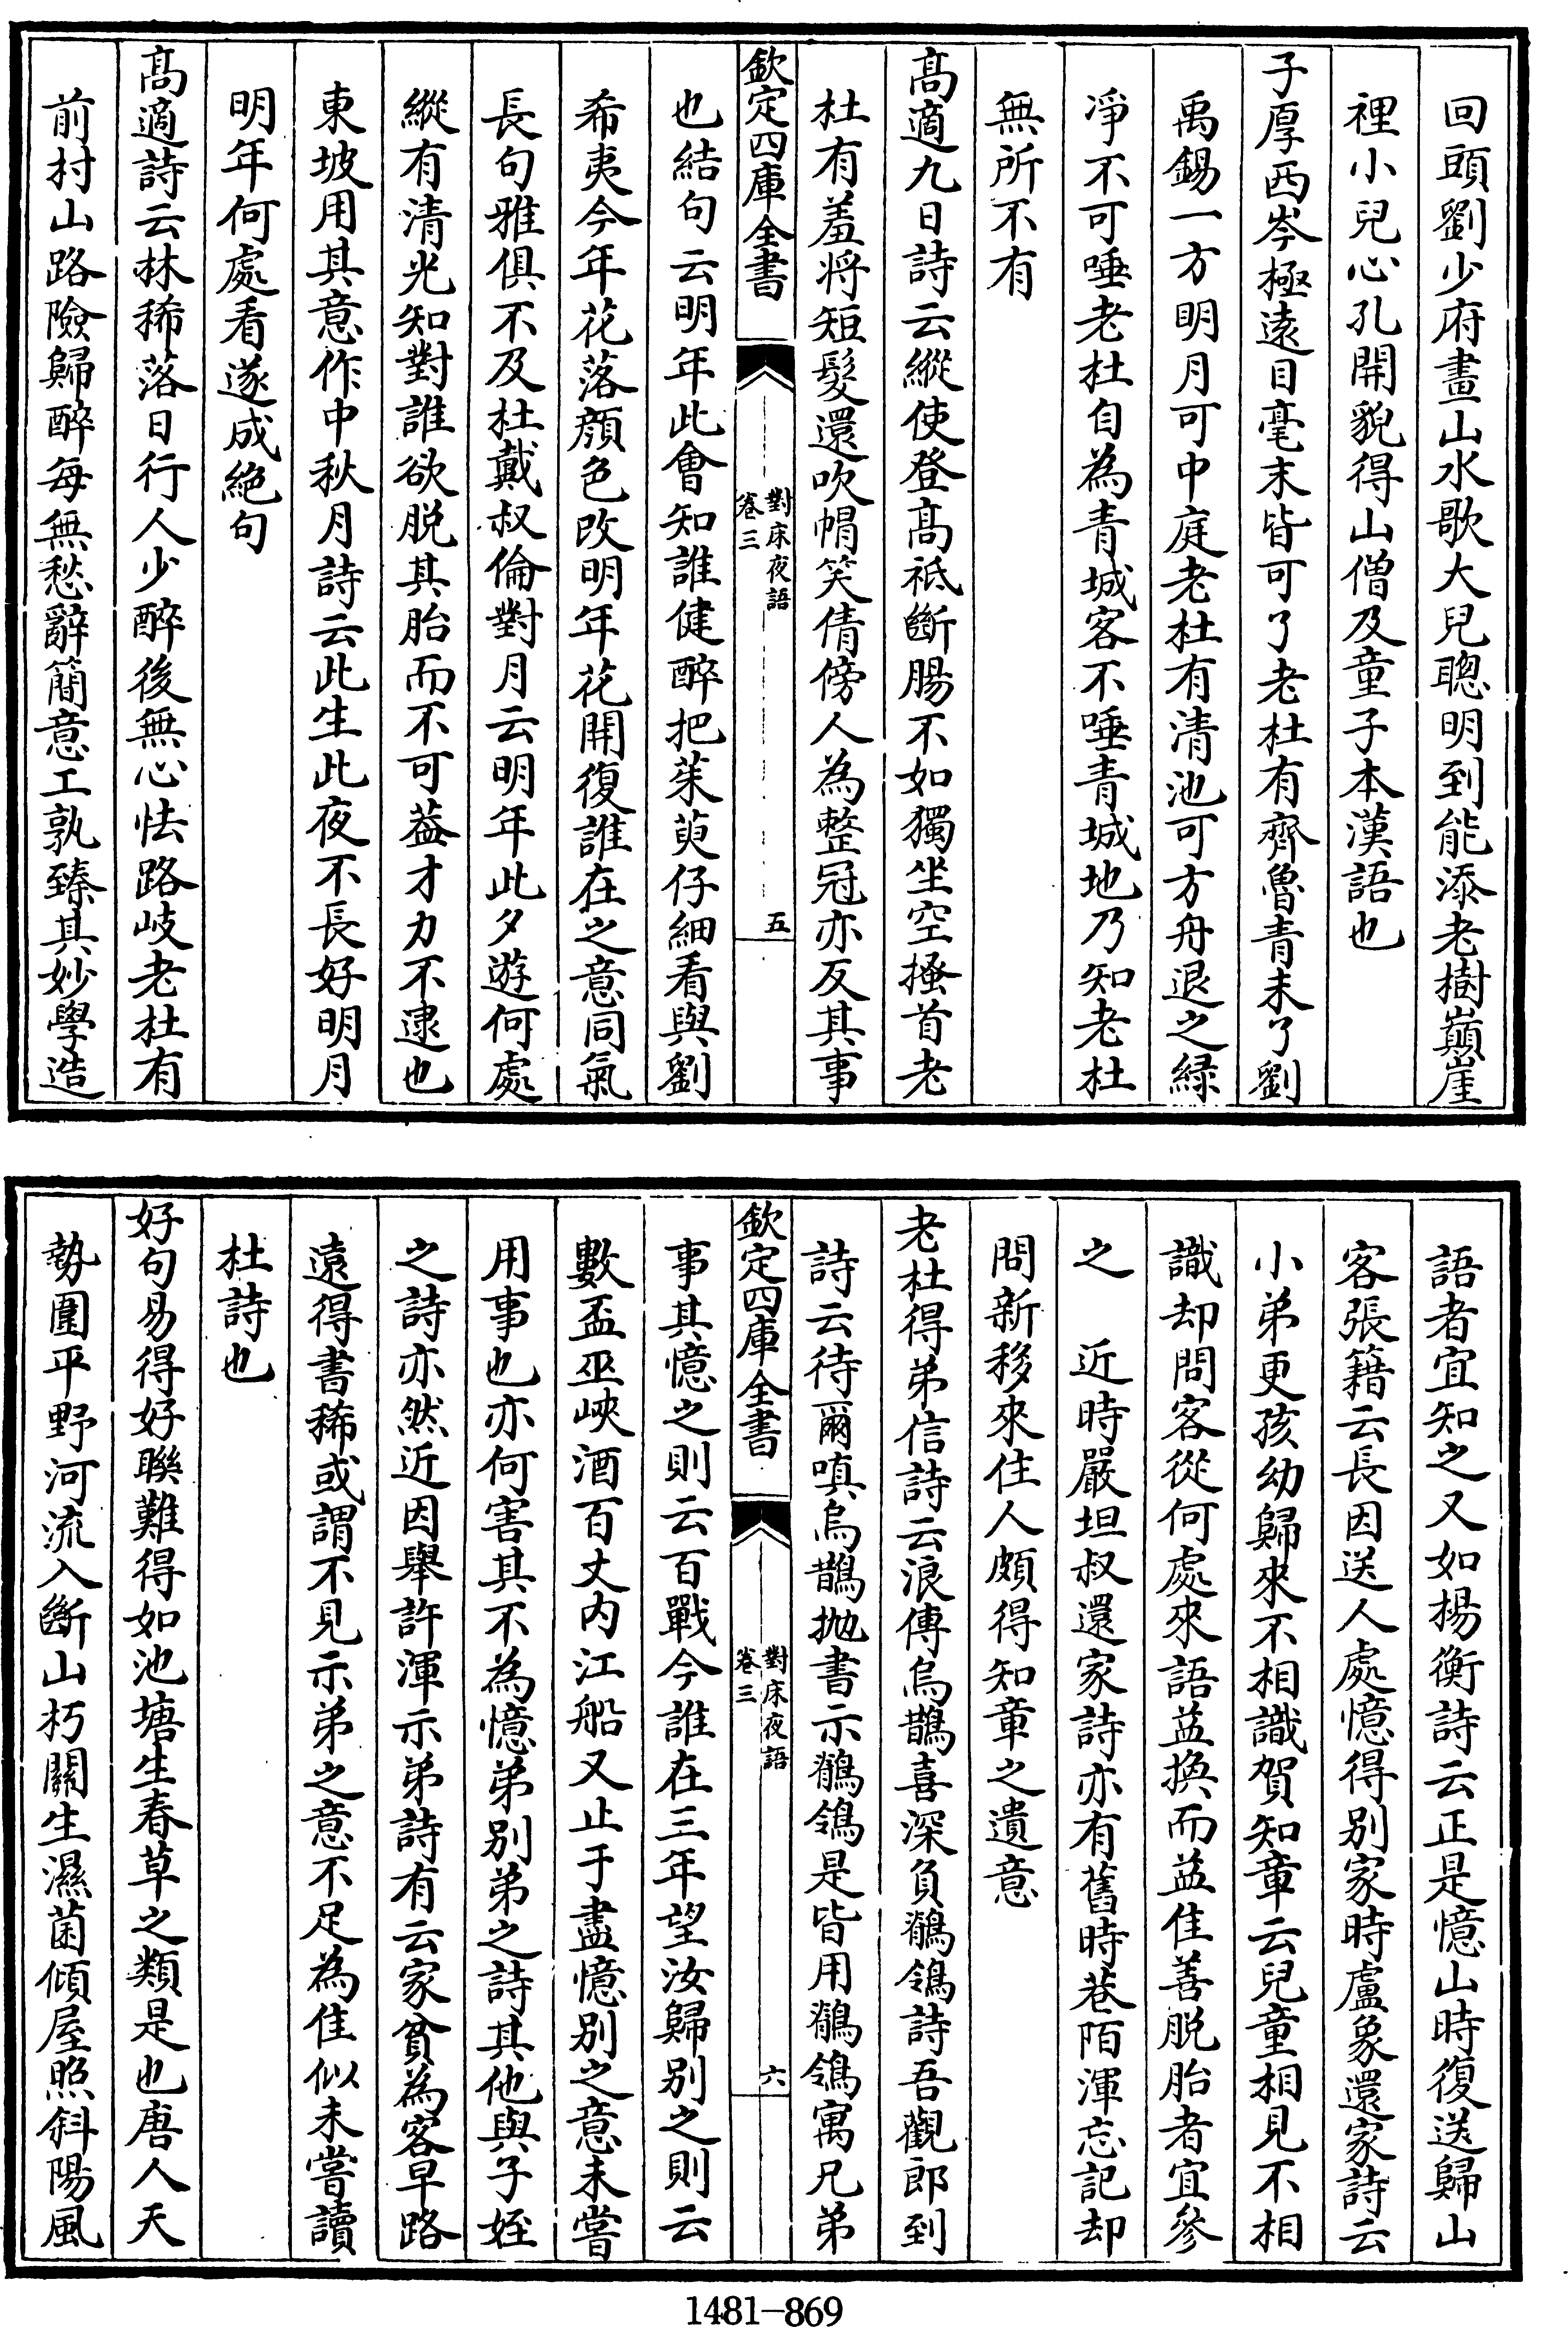 回頭劉少府畫山水歌大兒聰明到能添老樹巔崖
裡小兒心孔開貌得山僧及童子本漢語也
子厚西岑極遠目毫末皆可了老杜有齊魯青未了劉
禹錫一方明月可中庭老杜有清池可方舟退之緑
凈不可唾老杜自為青城客不唾青城地乃知老杜
無所不有
髙適九日詩云縱使登髙祗斷腸不如獨坐空搔首老
杜有羞将短髮還吹帽笑倩傍人為整冠亦反其事
欽定四庫全書
對床夜語
卷三
五
也結句云明年此會知誰健醉把茱萸仔細看與劉
希夷今年花落顔色改明年花開復誰在之意同氣
長句雅俱不及杜戴叔倫對月云明年此夕遊何處
縱有清光知對誰欲脱其胎而不可葢才力不逮也
東坡用其意作中秋月詩云此生此夜不長好明月
明年何處看遂成絶句
髙適詩云林稀落日行人少醉後無心怯路岐老杜有
前村山路險歸醉每無愁辭簡意工孰臻其妙學造
語者宜知之又如揚衡詩云正是憶山時復送歸山
客張籍云長因送人處憶得别家時盧象還家詩云
小弟更孩幼歸來不相識賀知章云兒童相見不相
識却問客從何處來語益換而益佳善脱胎者宜參
之　近時嚴坦叔還家詩亦有舊時巷陌渾忘記却
問新移來住人頗得知章之遺意
老杜得弟信詩云浪傳烏鵲喜深負鶺鴒詩吾觀郎到
詩云待爾嗔烏鵲抛書示鶺鴒是皆用鶺鴒寓兄弟
欽定四庫全書
對床夜語
卷三
六
事其憶之則云百戰今誰在三年望汝歸别之則云
數盃巫峽酒百丈内江船又止于盡憶别之意未嘗
用事也亦何害其不為憶弟别弟之詩其他與子姪
之詩亦然近因舉許渾示弟詩有云家貧為客早路
遠得書稀或謂不見示弟之意不足為佳似未嘗讀
杜詩也
好句易得好聯難得如池塘生春草之類是也唐人天
勢圍平野河流入斷山朽關生濕菌傾屋照斜陽風
1481-869